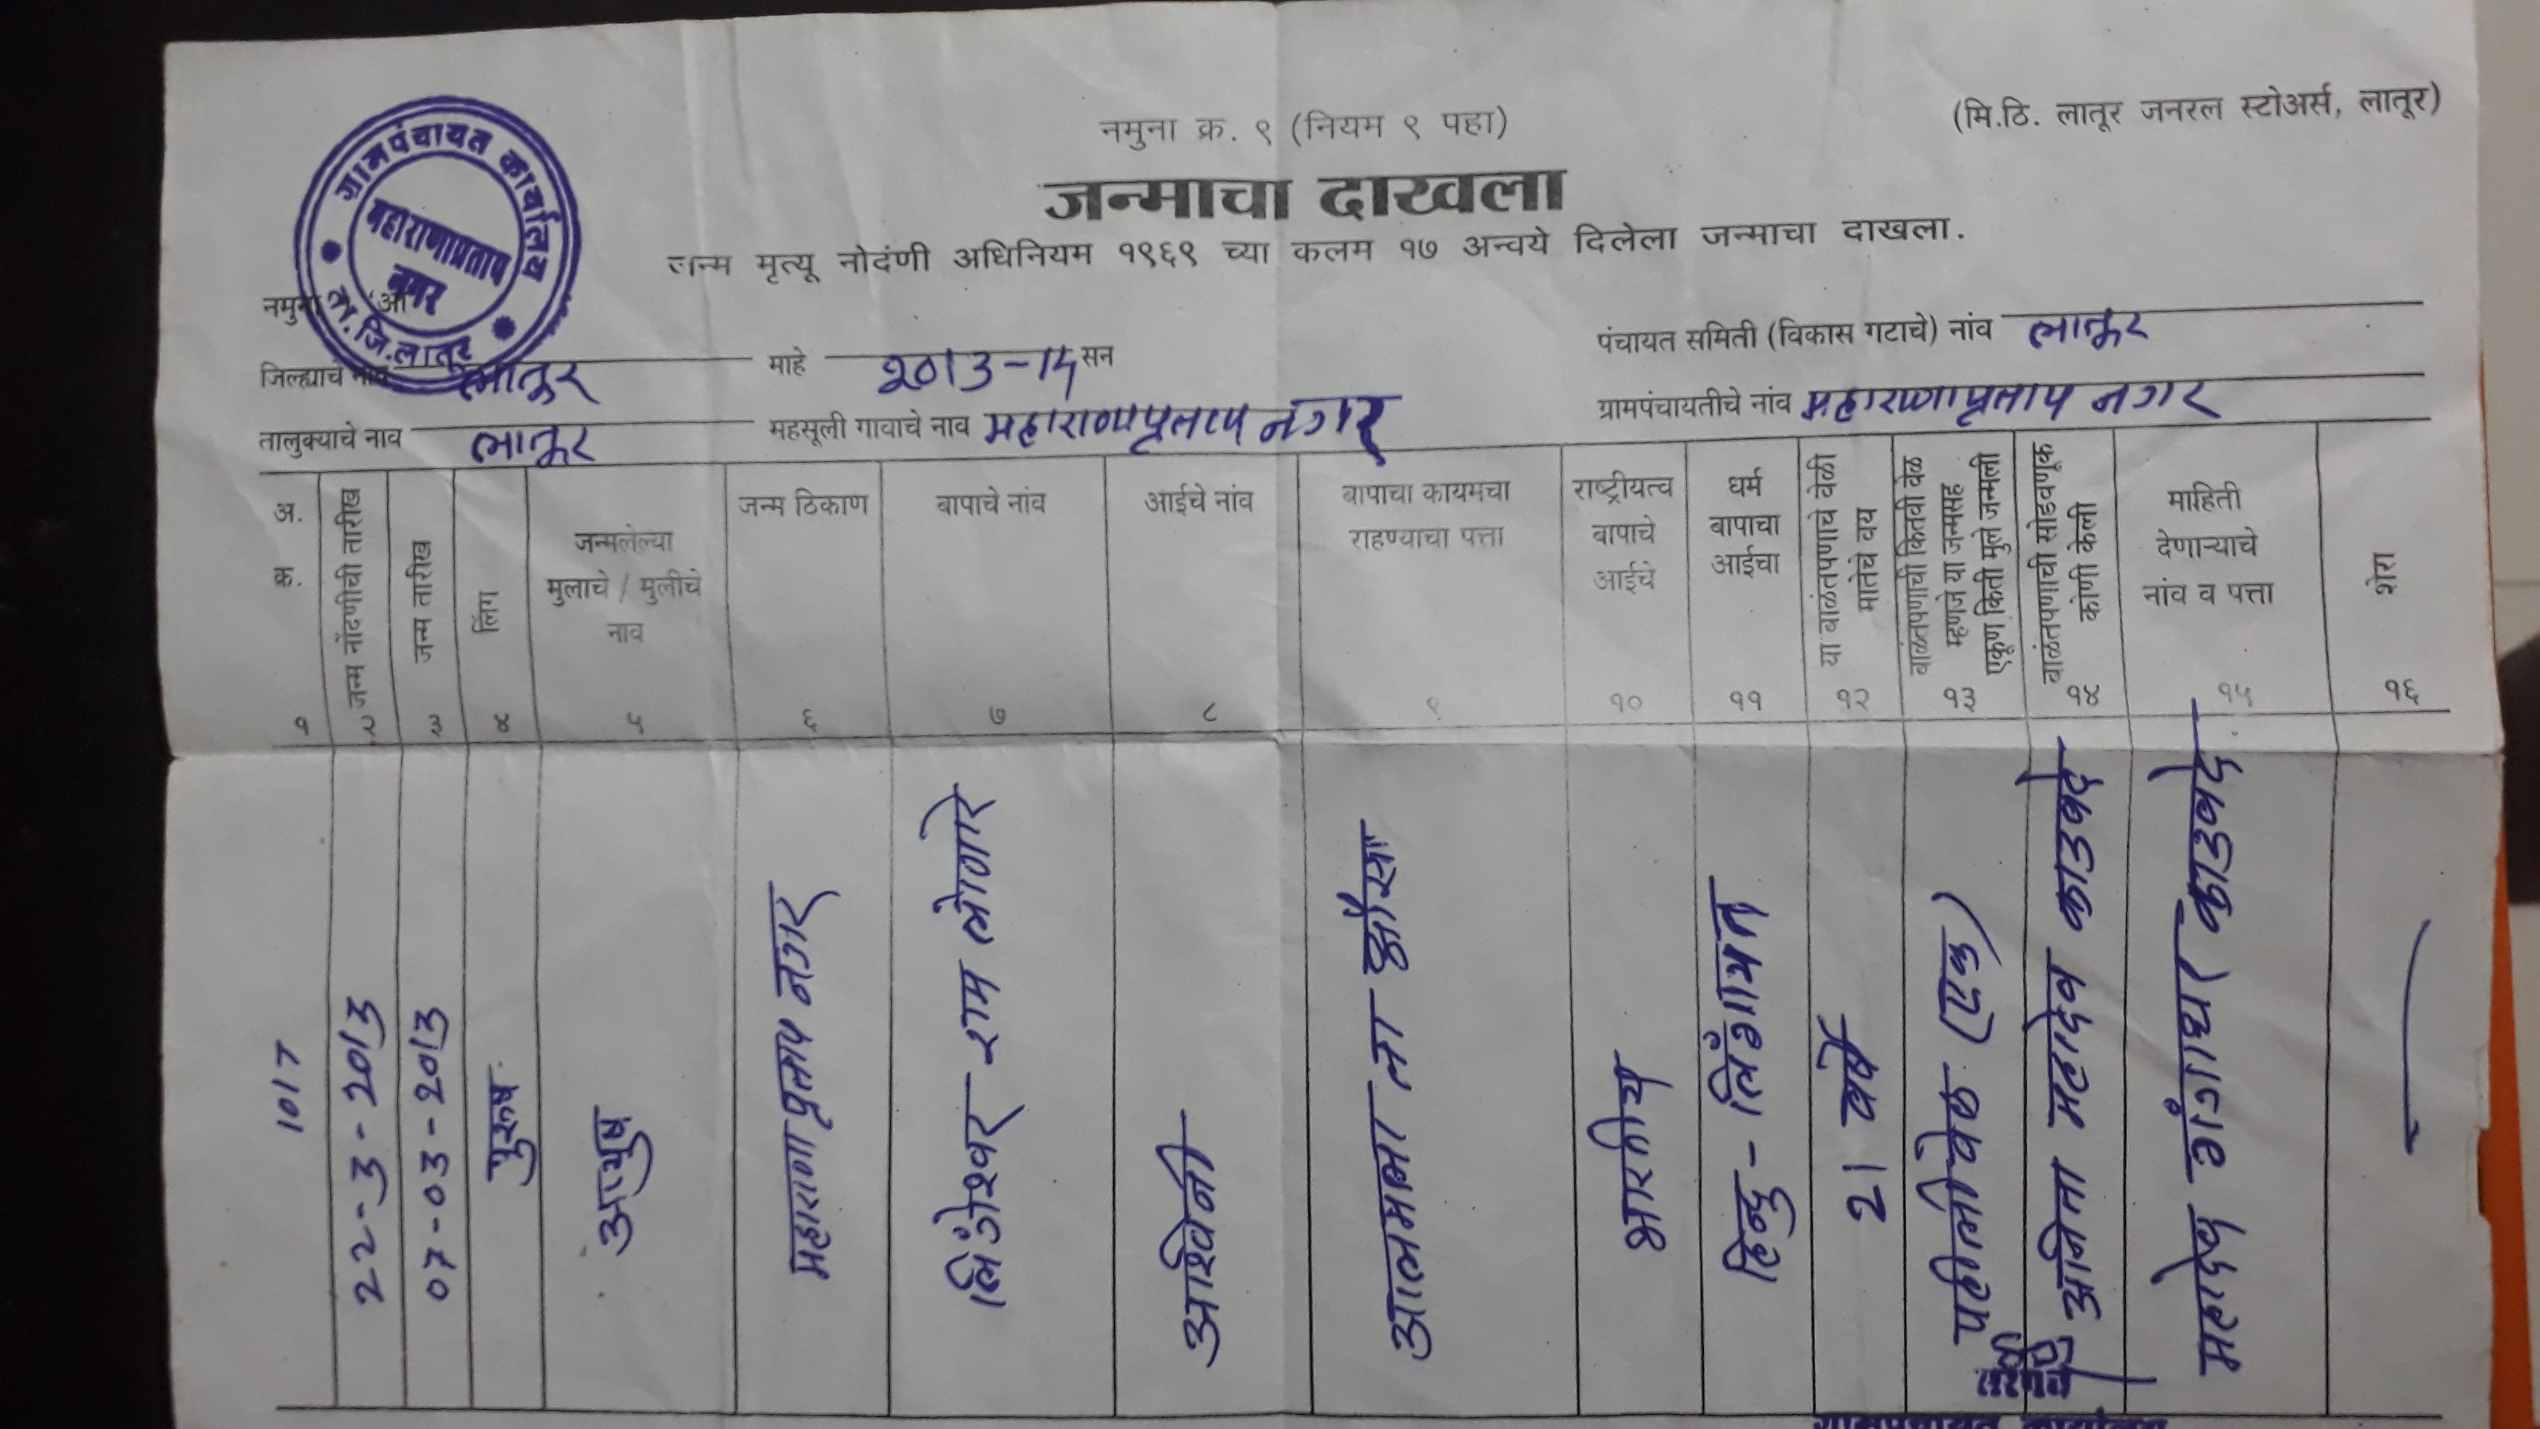 (मि.ठि. लातूर जनरल स्टोअर्स, लातूर)
नमुना क्र. ९ (नियम ९ पहा)
जन्माचा दाखला
जन्म मृत्यू नोदंणी अधिनियम १९६९ च्या कलम १७ अन्वये दिलेला जन्माचा दाखला.
ग्रामपंचायत कार्यालय
महाराणाप्रताप
नगर
ता.जि.लातूर
नमुना 'अ'
जिल्ह्याचे नाव लातूर माहे 2013-14 सन पंचायत समिती (विकास गटाचे) नांव लातूर
तालुक्याचे नाव लातूर महसूली गावाचे नाव महाराणाप्रताप नगर ग्रामपंचायतीचे नांव महाराणाप्रताप नगर
अ.
क.
जन्म नोंदणीची तारीख
जन्म तारीख
लिंग
जन्मलेल्या
मुलाचे / मुलीचे
नाव
जन्म ठिकाण
बापाचे नांव
आईचे नांव
बापाचा कायमचा
राहण्याचा पत्ता
राष्ट्रीयत्व
बापाचे
आईचे
धर्म
बापाचा
आईचा
या बाळंतपणाचे वेळी
मातेचे वय
बाळंतपणाची कितवी वेळ
म्हणजे या जन्मसह
एकूण किती मुले जन्मली
बाळंतपणाची सोडवणूक
कोणी केली
माहिती
देणाऱ्याचे
नांव व पत्ता
शेरा
१ २ ३ ४ ५ ६ ७ ८ ९ १० ११ १२ १३ १४ १५ १६
1017
22-3-2013
07-03-2013
पुरूष
आयुष
महाराणा प्रताप नगर
लिंगेश्वर राम लोणारे
आश्विनी
आलमला ता औसा
भारतीय
हिन्दु - लिंगायत
21 वर्षे
पहीलीवेळ (एक)
अनिता महादेव काडवदे
महादेव गंगाधर काडवदे
सरपंच
ग्रामपंचायत कार्यालय